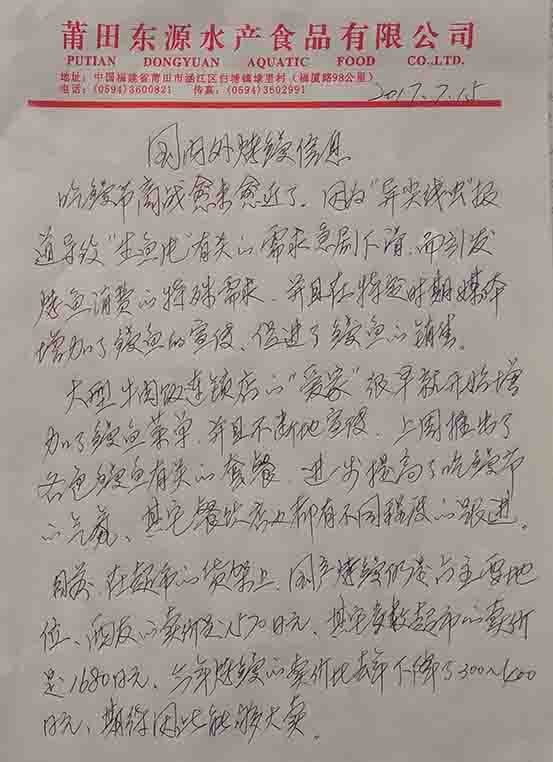 莆田东源水产食品有限公司
PUTIAN DONGYUAN AQUATIC FOOD CO.,LTD.
地址：中国福建省莆田市涵江区白塘镇埭里村（福厦路98公里）
电话：(0594)3600821 传真：(0594)3602991
2017.7.15
国内外烤鳗信息
吃鳗节商战愈来愈近了。因为“异尖线虫”报
道导致“生鱼片”有关的需求急剧下滑，而引发
烤鱼消费的特殊需求，并且在特定时期媒体
增加了鳗鱼的宣传，促进了鳗鱼的销售。
大型牛肉饭连锁店的“爱家”很早就开始增
加了鳗鱼菜单，并且不断地宣传，上周推出了
各色鳗鱼有关的套餐，进一步提高了吃鳗节
的气氛，其它餐饮店也都有不同程度的跟进。
目前，在超市的货架上，国产烤鳗仍是占主要地
位，西友的卖价是1570日元，其它多数超市的卖价
是1680日元，今年烤鳗的卖价比去年下降了300~400
日元，期待因此能够大卖。